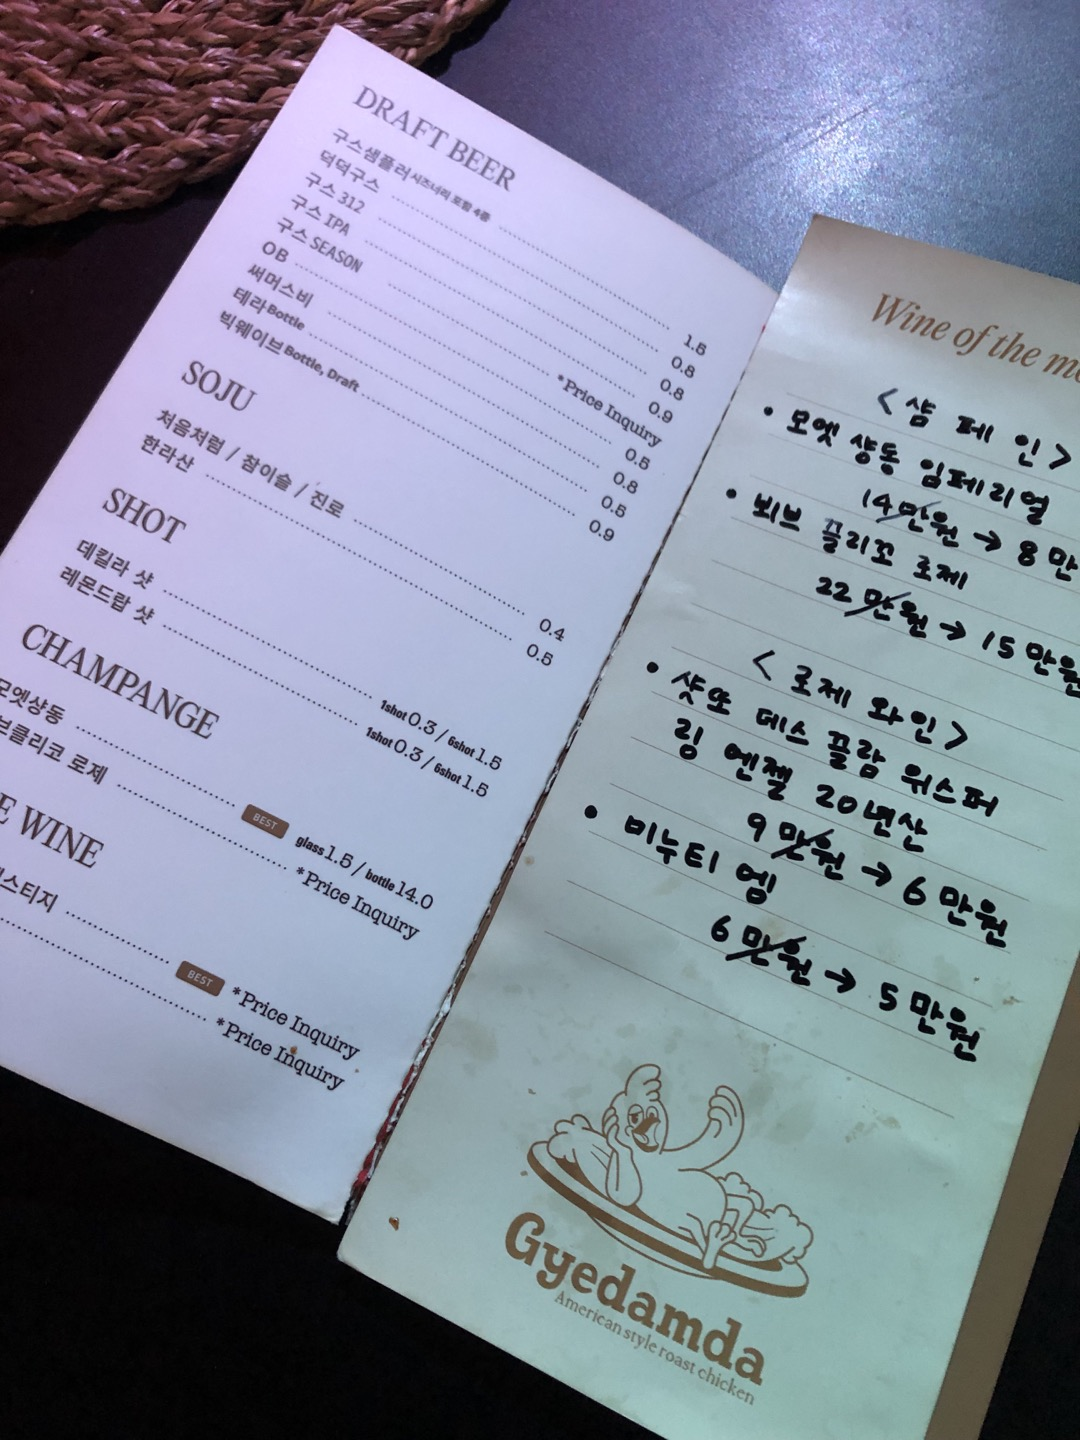 DRAFT BEER
구스샘플러 시즈너리 포함 4종 1.5
덕덕구스 0.8
구스 312 0.8
구스 IPA 0.9
구스 SEASON *Price Inquiry
OB 0.5
써머스비 0.8
테라Bottle 0.5
빅웨이브Bottle, Draft 0.9
SOJU
처음처럼 / 참이슬 / 진로 0.4
한라산 0.5
SHOT
데킬라 샷 1shot 0.3 / 6shot 1.5
레몬드랍 샷 1shot 0.3 / 6shot 1.5
CHAMPANGE
모엣샹동 BEST glass 1.5 / bottle 14.0
브클리코 로제 *Price Inquiry
E WINE
스티지 BEST *Price Inquiry
*Price Inquiry
Wine of the mo
<샴 페 인>
• 모엣 샹동 임페리얼
14만원 → 8만
• 뵈브 끌리꼬 로제
22만원 → 15만원
<로제 와인>
• 샷또 데스 끌람 위스퍼
링 엔젤 20년산
9만원 → 6만원
• 미누티 엠
6만원 → 5만원
Gyedamda
American style roast chicken